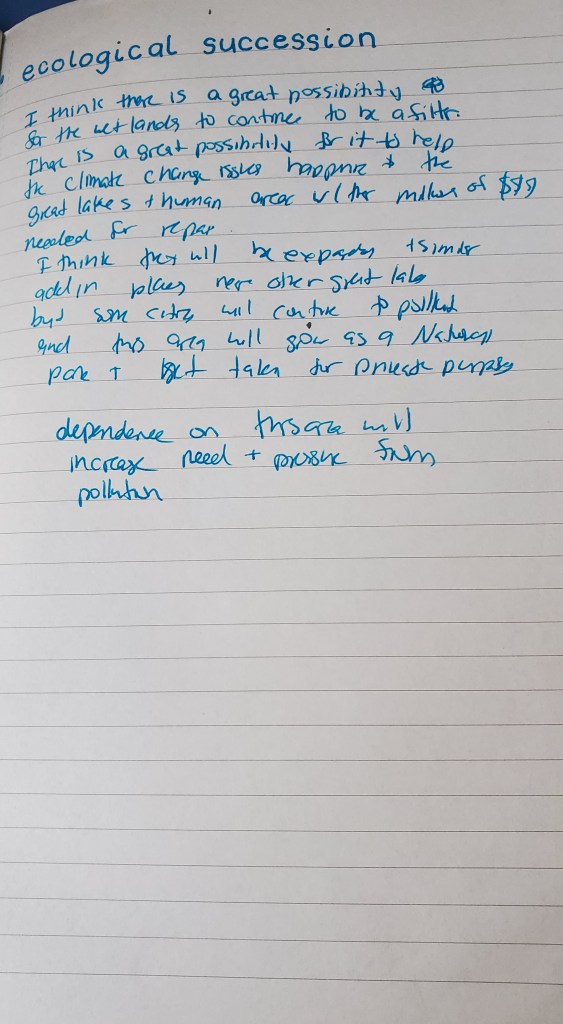 ecological succession
I think there is a great possibility
for the wetlands to continue to be a filter.
There is a great possibility for it to help
the climate change issues happening to the
great lakes + human areas w/ the millions of $$$
needed for repair.
I think they will be expanded + similar
add in places near other great lake
but some cities will continue to pollut
and this area will grow as a National
park + get taken for private purposes
dependence on this area will
increase need + pressure from
pollution